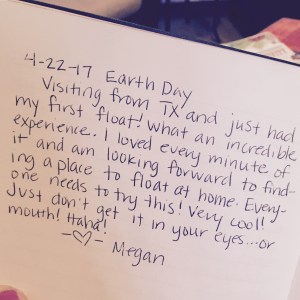 4-22-17 Earth Day
Visiting from TX and just had
my first float! What an incredible
experience. I loved every minute of
it and am looking forward to find-
ing a place to float at home. Every-
one needs to try this! Very cool!
Just don't get it in your eyes...or
mouth! Haha!
-♡- Megan